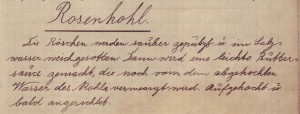 Rosenkohl.
Die Röschen werden sauber geputzt u. im Salz
wasser weichgesotten. Dann wird eine leichte Butter-
sauce gemacht, die noch von dem abgekochten
Wasser des Kohls vermengt wird. Aufgekocht u.
bald angerichtet.